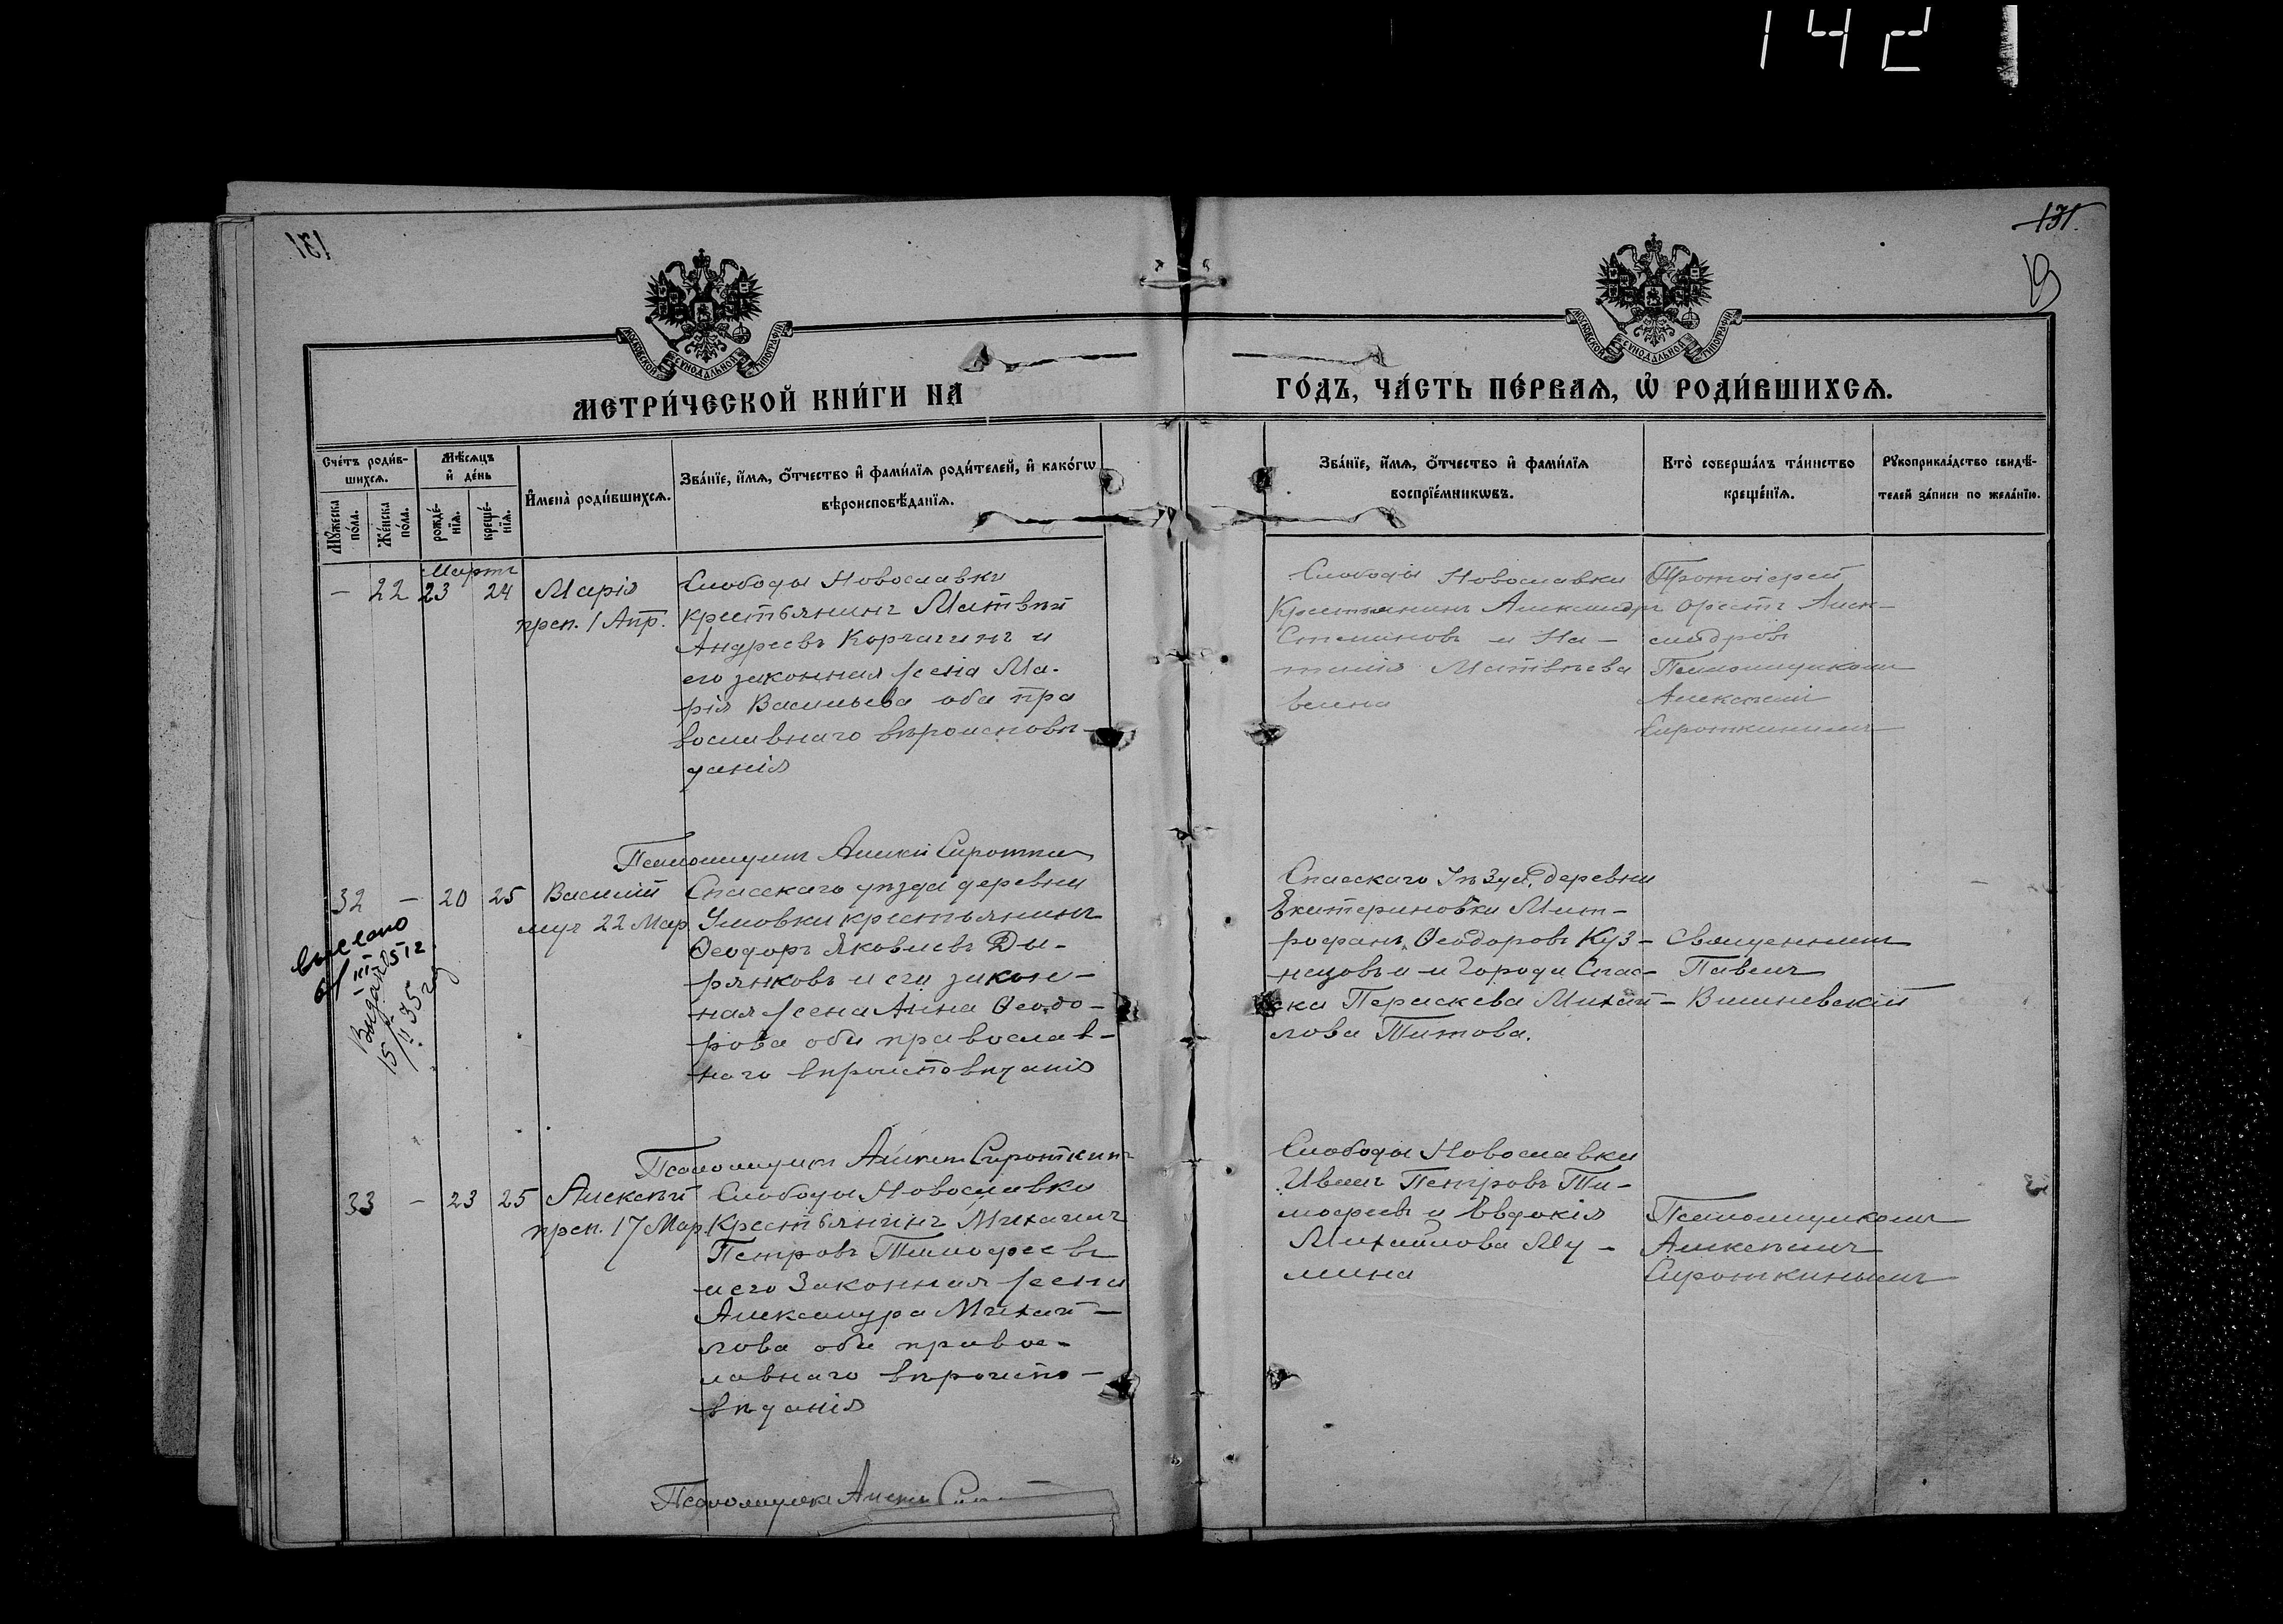 142
131.
19
МОСКОВСКОЙ СѴНОДАЛЬНОЙ ТИПОГРАФІИ
МОСКОВСКОЙ СѴНОДАЛЬНОЙ ТИПОГРАФІИ
МЕТРИ́ЧЕСКОЙ КНИ́ГИ НА ГО́ДЪ, ЧА́СТЬ ПЕ́РВАѦ, Ѡ҆ РОДИ́ВШИХСѦ.
Сче́тъ роди́в-
шихсѧ.
Мꙋ́жеска по́ла.
Же́нска по́ла.
Мѣ́сѧцъ
и҆ де́нь
рожде́-
нїѧ.
креще́-
нїѧ.
И҆мена̀ роди́вшихсѧ.
Зва́нїе, и҆́мѧ, ѻ҆́тчество и҆ фами́лїѧ роди́телей, и҆ како́гѡ
вѣроисповѣ́данїѧ.
Зва́нїе, и҆́мѧ, ѻ҆́тчество и҆ фами́лїѧ
воспрїе́мникѡвъ.
Кто̀ соверша́лъ та́инство
креще́нїѧ.
Рꙋкоприкла́дство свидѣ́-
телей за́писи по жела́нїю.
Мартъ
— 22 23 24 Марія
преп. 1 Апр.
Слободы Новославки
крестьянинъ Матвѣй
Андреевъ Корчагинъ и
его законная жена Ма-
рія Васильева оба пра
вославнаго вѣроисповѣ-
данія
Слободы Новославки
Крестьянинъ Александръ
Степановъ и На-
талія Матвѣева
Протоіерей
Орестъ Алек-
сандровъ
Псаломщикомъ
Алексѣемъ
Сироткинымъ
Псаломщикъ Алексѣй Сироткин
32 — 20 25 Василій
муч 22 Мар
Спасскаго уѣзда деревни
Умовки крестьянинъ
Ѳеодоръ Яковлевъ Ды-
рянковъ и его закон-
ная жена Анна Ѳеодо-
рова оба православ-
наго вѣроисповѣданія
Спасскаго Уѣзда, деревни
Екатериновки Мит-
рофанъ Ѳеодоровъ Куз-
нецовъ и Города Спас-
ска Параскева Михай-
лова Титова.
Священникъ
Павелъ
Вишневскій
Псаломщикъ Алексѣй Сироткинъ
33 — 23 25 Алексѣй
преп. 17 Мар
Слободы Новославки
Крестьянинъ Михаилъ
Петровъ Тимофеевъ
и его Законная жена
Александра Михай-
лова оба правос-
лавнаго вѣроиспо-
вѣданія
Слободы Новославки
Иванъ Петровъ Ти-
мофеевъ и Евдокія
Михайлова Му-
мина
Псаломщикомъ
Алексѣемъ
Сироткинымъ
Псаломщикъ Алексѣй